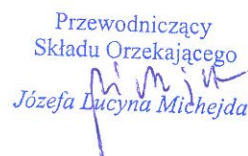 Przewodniczący
Składu Orzekającego
Józefa Lucyna Michejda